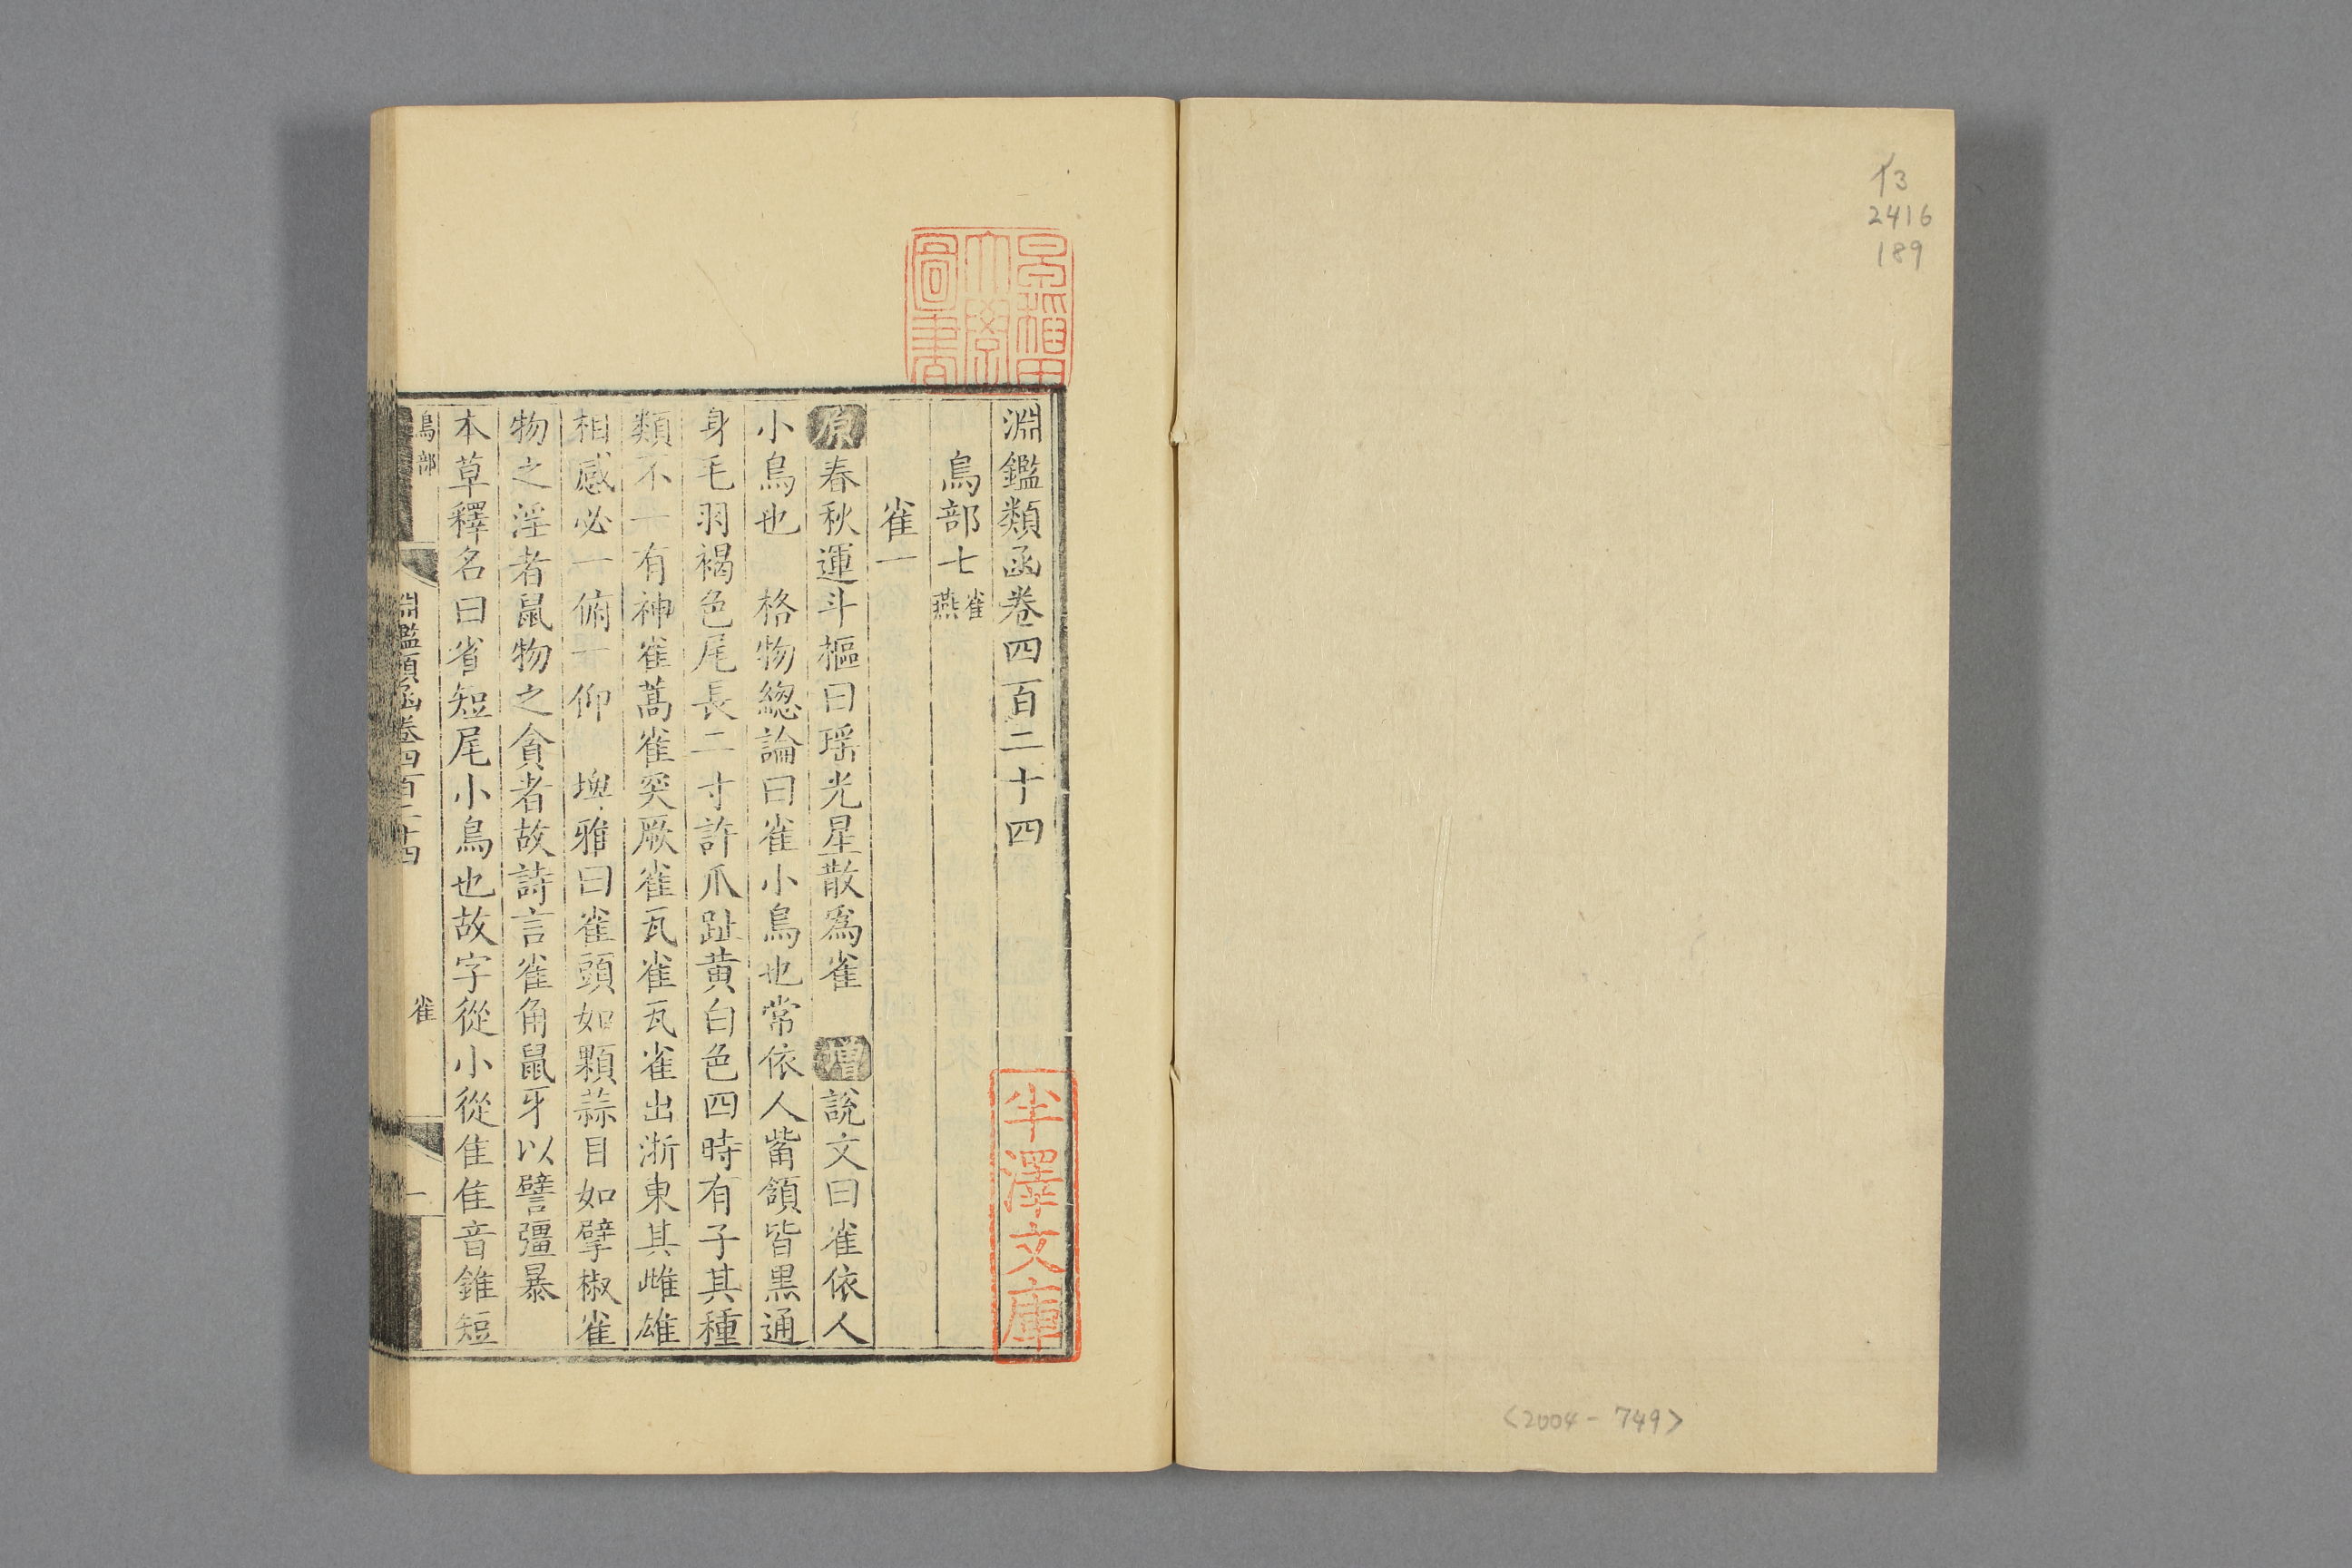 イ3
2416
189
<2004-749>
早稲田
大學
圖書
淵鑑類函卷四百二十四
鳥部七 雀 燕
雀一
原 春秋運斗樞曰瑶光星散爲雀 增 說文曰雀依人
小鳥也 格物總論曰雀小鳥也常依人觜頷皆黒通
身毛羽褐色尾長二寸許爪趾黄白色四時有子其種
類不一有神雀蒿雀突厥雀瓦雀瓦雀出浙東其雌雄
相感必一俯一仰 埤雅曰雀頭如顆蒜目如擘椒雀
物之淫者鼠物之貪者故詩言雀角鼠牙以譬彊暴
本草釋名曰省短尾小鳥也故字從小從隹隹音錐短
鳥部 淵鑑類函卷四百二十四 雀 一
半澤文庫